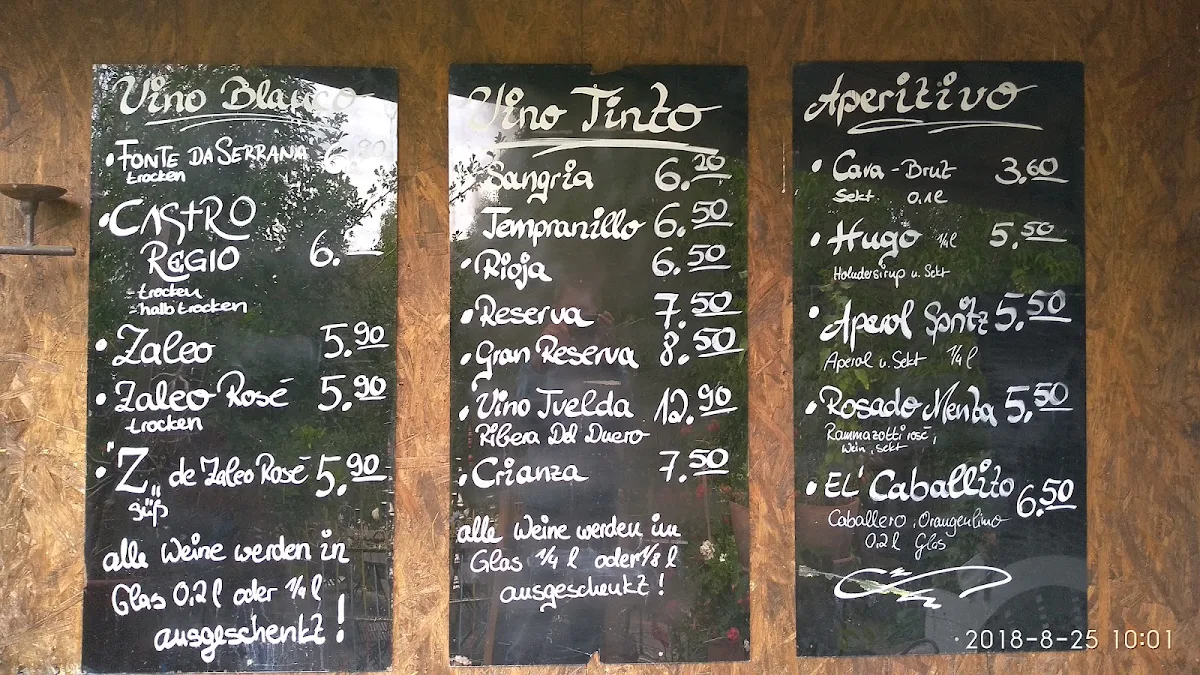 Vino Blanco
• FONTE DA SERRANA 6.90
trocken
• CASTRO
REGIO 6.—
- trocken
- halbtrocken
• Zaleo 5.90
• Zaleo Rosé 5.90
- trocken
• "Z" de Zaleo Rosé 5.90
süß
alle Weine werden in
Glas 0,2 l oder 1/4 l
ausgeschenkt !
Vino Tinto
• Sangria 6.20
Tempranillo 6.50
• Rioja 6.50
• Reserva 7.50
• Gran Reserva 8.50
• Vino Tvelda 12.90
Ribera Del Duero
• Crianza 7.50
alle Weine werden im
Glas 1/4 l oder 1/8 l
ausgeschenkt !
Aperitivo
• Cava - Brut 3.60
Sekt 0.1l
• Hugo 1/4 l 5.50
Holundersirup u. Sekt
• Aperol Spritz 5.50
Aperol u. Sekt 1/4 l
• Rosado Menta 5.50
Rammazotti rosé,
Wein, Sekt
• EL' Caballito 6.50
Caballero, Orangenlimo
0,2 l Glas
2018-8-25 10:01